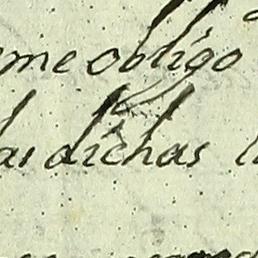 me obligo
las dichas